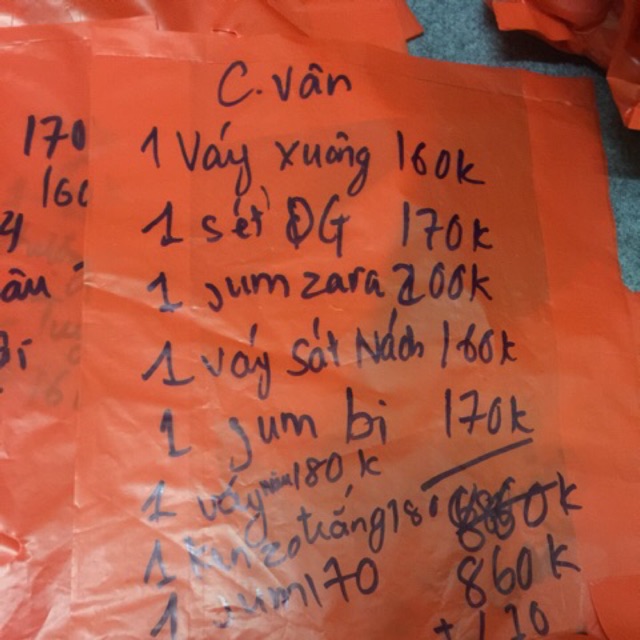 C. Vân
1 Váy xuông 160k
1 sét QG 170k
1 jum zara 200k
1 váy sát Nách 160k
1 jum bi 170k
1 váy 180k
1 trắng 18
860k
1 jum 170
860k
170
160
âu